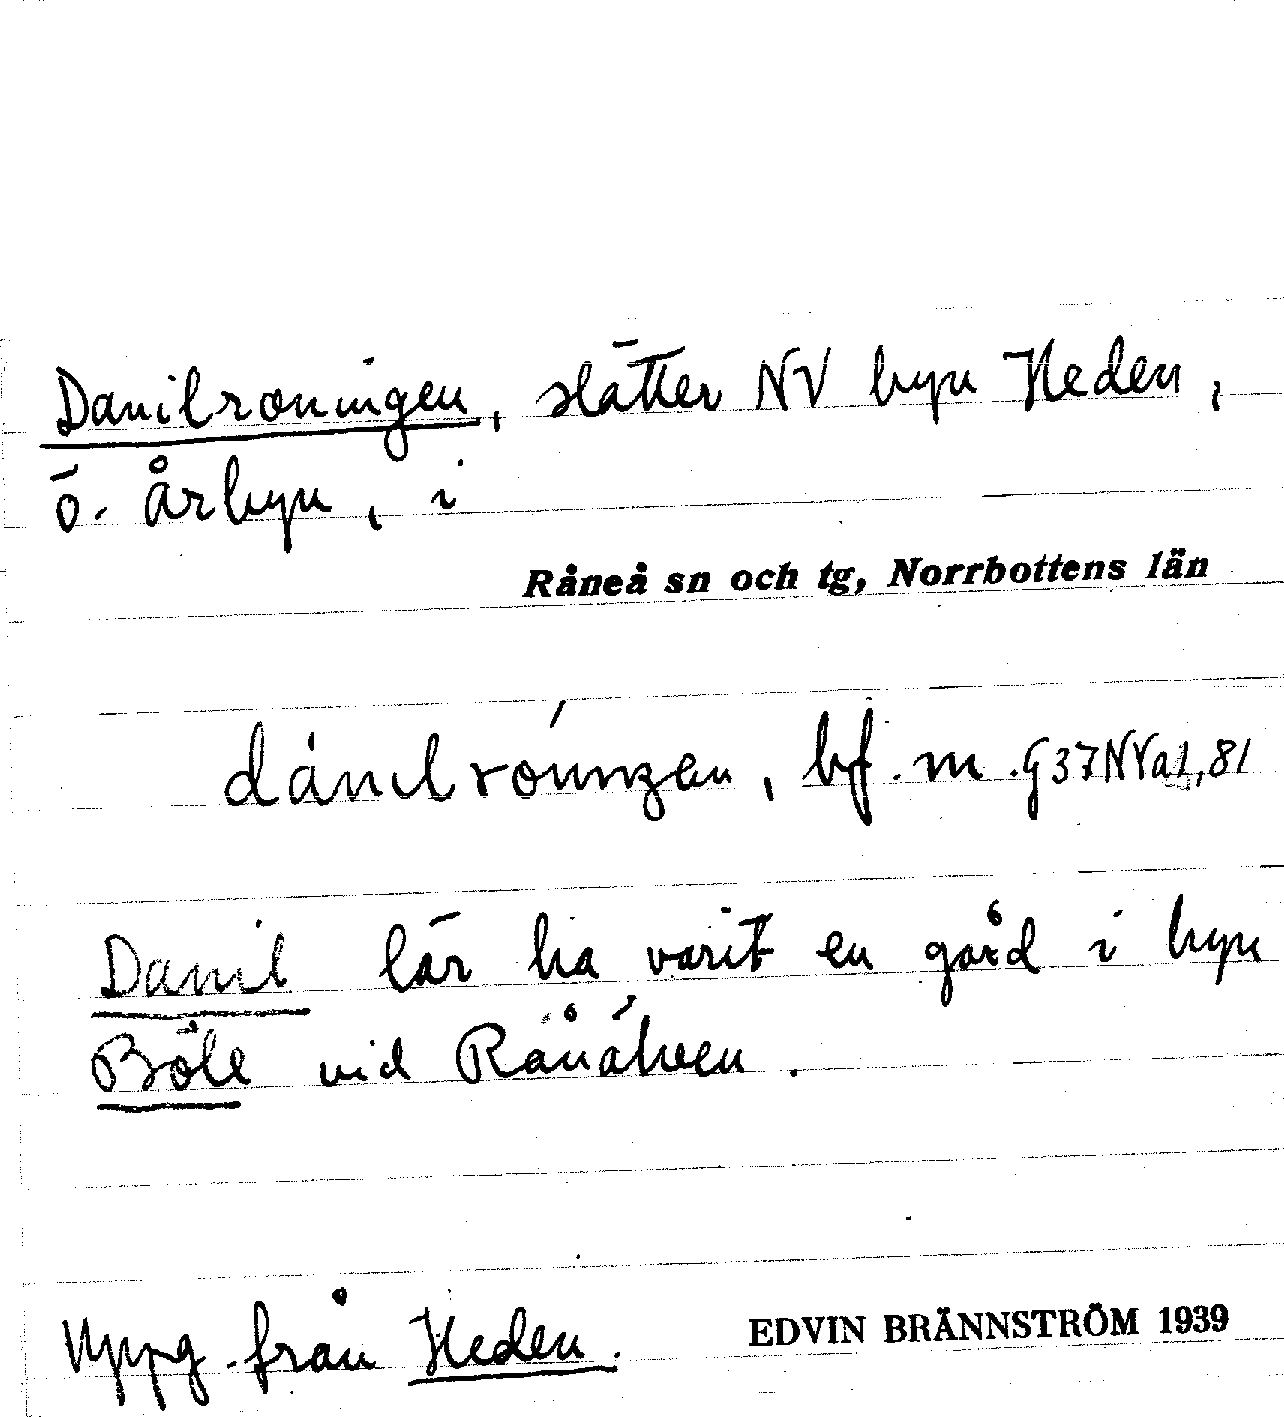 Danilroningen, slåtter NV byn Heden,
ö. årbyn, i
Råneå sn och tg, Norrbottens län
bf. m.
Danil lär ha varit en gård i byn
Böle vid Råneälven.
Uppg. från Heden.
EDVIN BRÄNNSTRÖM 1939